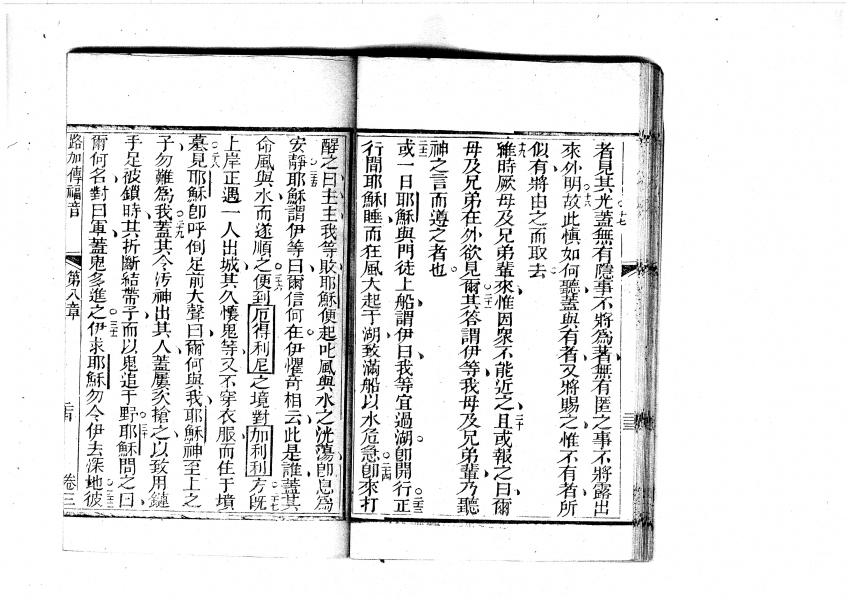 者見其光蓋無有隱事不將為著無有匿之事不將露出
來外明故此慎如何聽蓋與有者又將賜之惟不有者所
似有將由之而取去
雖時厥母及兄弟輩來惟因眾不能近之且或報之曰爾
母及兄弟在外欲見爾其答謂伊等我母及兄弟輩乃聽
神之言而遵之者也
或一日耶穌與門徒上船謂伊曰我等宜過湖卽開行正
行間耶穌睡而狂風大起于湖致滿船以水危急卽來打
醒之曰主主我等敗耶穌便起叱風與水之洸蕩卽息為
安靜耶穌謂伊等曰爾信何在伊懼奇相云此是誰蓋其
命風與水而遂順之便到厄得利尼之境對加利利方旣
上岸正遇一人出城其久懷鬼等又不穿衣服而住于墳
墓見耶穌卽呼倒足前大聲曰爾何與我耶穌神至上之
子勿難為我蓋其令污神出其人蓋屢次搶之以致用鏈
手足被鎖時其折斷結帶子而以鬼追于野耶穌問之曰
爾何名對曰軍蓋鬼多進之伊求耶穌勿令伊去深地彼
路加傳福音
第八章
卷三